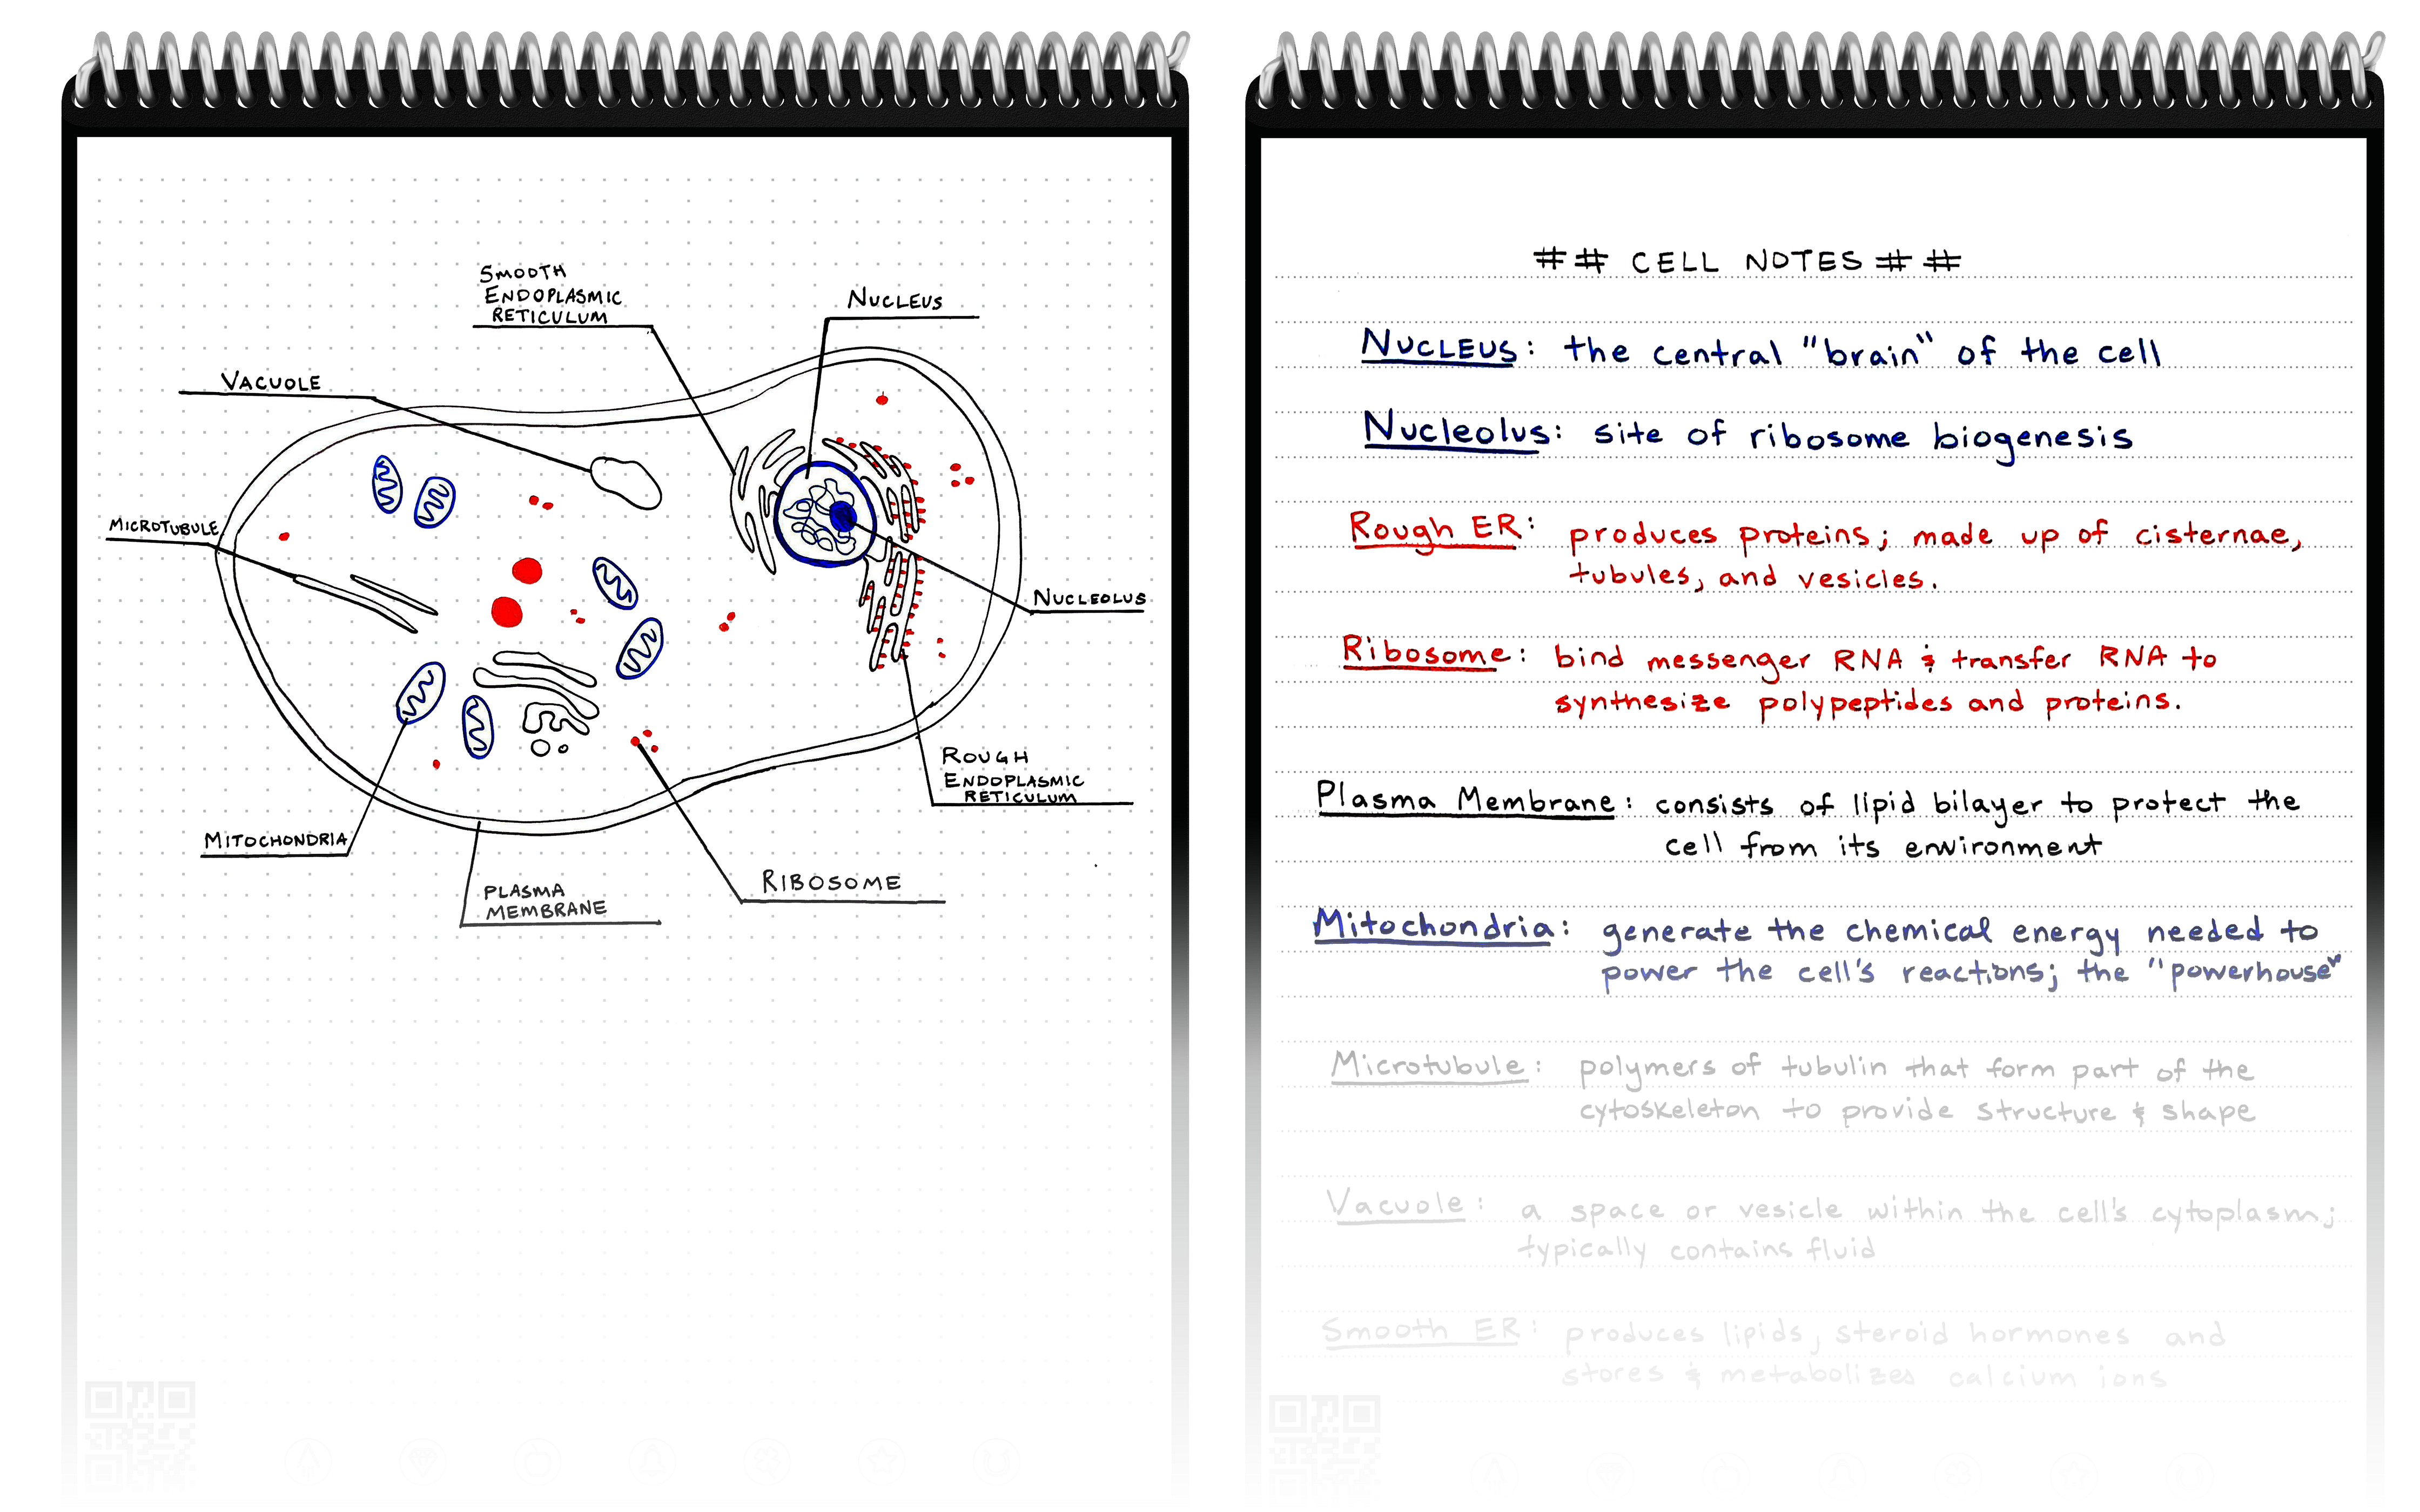 SMOOTH
ENDOPLASMIC
RETICULUM
NUCLEUS
VACUOLE
MICROTUBULE
NUCLEOLUS
ROUGH
ENDOPLASMIC
RETICULUM
MITOCHONDRIA
PLASMA
MEMBRANE
RIBOSOME
## CELL NOTES ##
NUCLEUS: the central "brain" of the cell
Nucleolus: site of ribosome biogenesis
Rough ER: produces proteins; made up of cisternae,
tubules, and vesicles.
Ribosome: bind messenger RNA & transfer RNA to
synthesize polypeptides and proteins.
Plasma Membrane: consists of lipid bilayer to protect the
cell from its environment
Mitochondria: generate the chemical energy needed to
power the cell's reactions; the "powerhouse"
Microtubule: polymers of tubulin that form part of the
cytoskeleton to provide structure & shape
Vacuole: a space or vesicle within the cell's cytoplasm;
typically contains fluid
Smooth ER: produces lipids, steroid hormones and
stores & metabolizes calcium ions